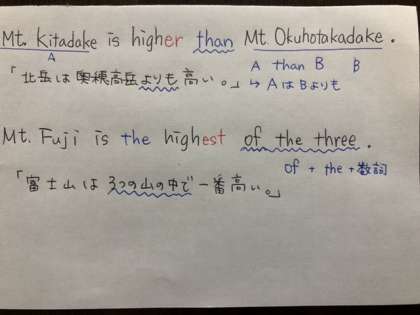 Mt. Kitadake is higher than Mt. Okuhotakadake.
A A than B B
「北岳は奥穂高岳よりも高い。」 ↳ AはBよりも
Mt. Fuji is the highest of the three.
of + the + 数詞
「富士山は3つの山の中で一番高い。」